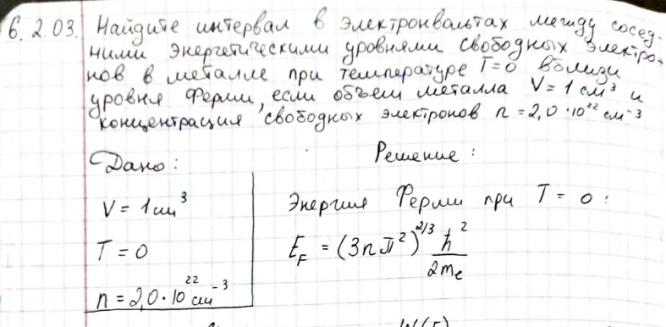 6.2.03. Найдите интервал в электронвольтах между сосед-
ними энергетическими уровнями свободных электро-
нов в металле при температуре T=0 вблизи
уровня Ферми, если объем металла V = 1 см³ и
концентрация свободных электронов n = 2,0·10²² см⁻³
Дано:
Решение:
V = 1 см³
Энергия Ферми при T = 0:
T = 0
E_F = (3nπ²)^(2/3) ħ²/2mₑ
n = 2,0·10²² см⁻³